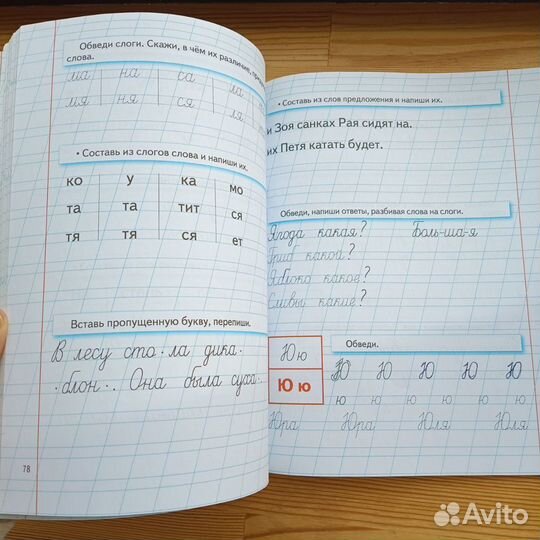 Обведи слоги. Скажи, в чём их различие,
слова.
ма на са ла
мя ня ся ля
• Составь из слогов слова и напиши их.
ко у ка мо
та та тит ся
тя тя ся ет
Вставь пропущенную букву, перепиши.
В лесу сто • ла дика •
• блон • . Она была суха •
78
• Составь из слов предложения и напиши их.
и Зоя санках Рая сидят на.
их Петя катать будет.
Обведи, напиши ответы, разбивая слова на слоги.
Ягода какая? Боль-ша-я
Гриб какой?
Яблоко какое?
Сливы какие?
Юю
Юю
Обведи.
Ю Ю Ю Ю Ю
ю ю ю ю ю ю
Юра Юра Юля Юля
Avito